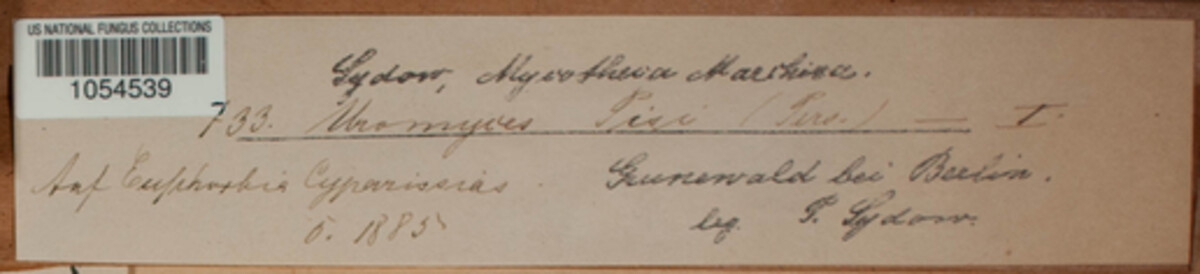 US NATIONAL FUNGUS COLLECTIONS
1054539
Sydow, Mycotheca Marchica.
733. Uromyces Pisi (Pers.) — I.
Auf Euphorbia Cyparissias.
5. 1885
Grunewald bei Berlin.
leg. P. Sydow.